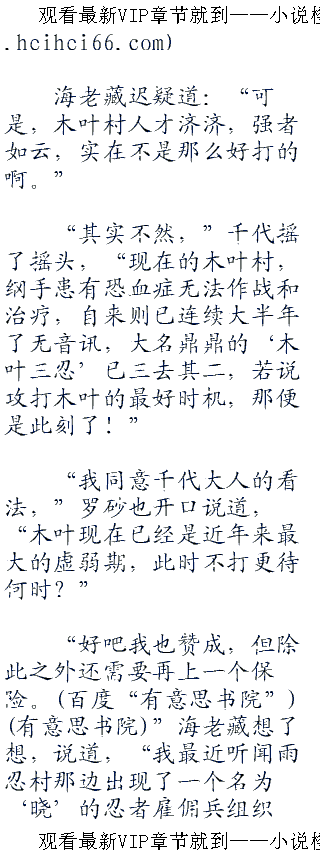 观看最新VIP章节就到——小说楼
.hcihci66.com)
海老藏迟疑道：“可
是，木叶村人才济济，强者
如云，实在不是那么好打的
啊。”
“其实不然，”千代摇
了摇头，“现在的木叶村，
纲手患有恐血症无法作战和
治疗，自来则已连续大半年
了无音讯，大名鼎鼎的‘木
叶三忍’已三去其二，若说
攻打木叶的最好时机，那便
是此刻了！”
“我同意千代大人的看
法，”罗砂也开口说道，
“木叶现在已经是近年来最
大的虚弱期，此时不打更待
何时？”
“好吧我也赞成，但除
此之外还需要再上一个保
险。(百度“有意思书院”)
(有意思书院)”海老藏想了
想，说道，“我最近听闻雨
忍村那边出现了一个名为
‘晓’的忍者雇佣兵组织
观看最新VIP章节就到——小说楼